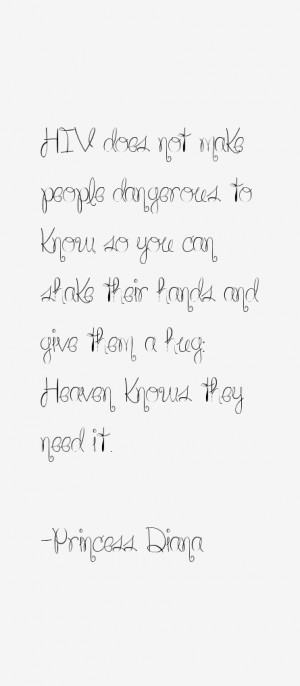 HIV does not make
people dangerous to
know, so you can
shake their hands and
give them a hug:
Heaven knows they
need it.
-Princess Diana